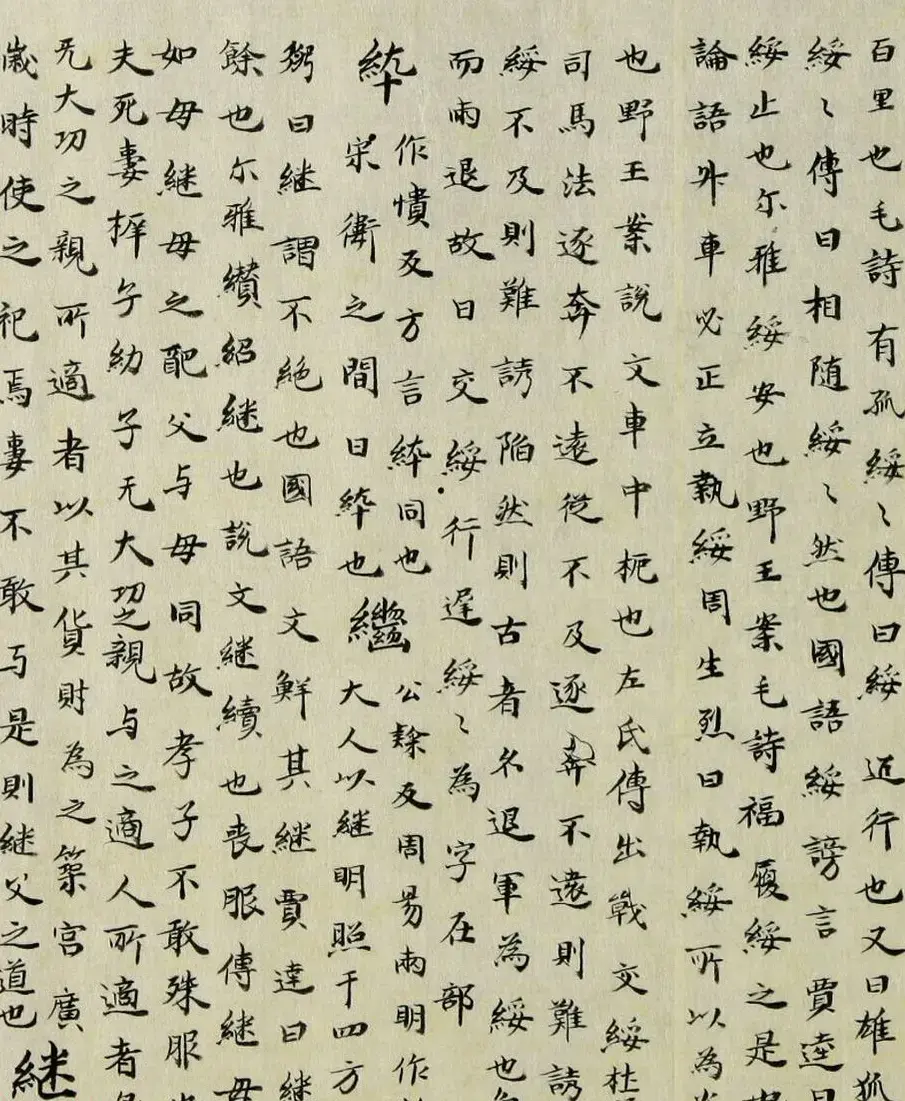 百里也毛詩有孤綏〻傳曰綏 近行也又曰雄狐
綏〻傳曰相随綏〻然也國語綏謗言賈逵曰
綏止也尓雅綏安也野王案毛詩福履綏之是
論語升車必正立執綏周生烈曰執綏所以為
也野王案說文車中枙也左氏傳出戦交綏杜
司馬法逐奔不遠従不及逐奔不遠則難誘
綏不及則難誘陷然則古者名退軍為綏也
而雨退故曰交綏行遅綏〻為字在部
綷 作憒反方言綷同也
宋衛之間曰綷也
繼 公䅲反周易兩明作
大人以継明照于四方
弼曰継謂不絶也國語文鮮其継賈逵曰継
餘也尓雅纉紹継也說文継續也丧服傳継母
如母継母之配父与母同故孝子不敢殊服
夫死妻稺子幼子无大功之親与之適人所適者
无大功之親所適者以其貨財為之築宫廣
歳時使之祀焉妻不敢与是則継父之道也
継